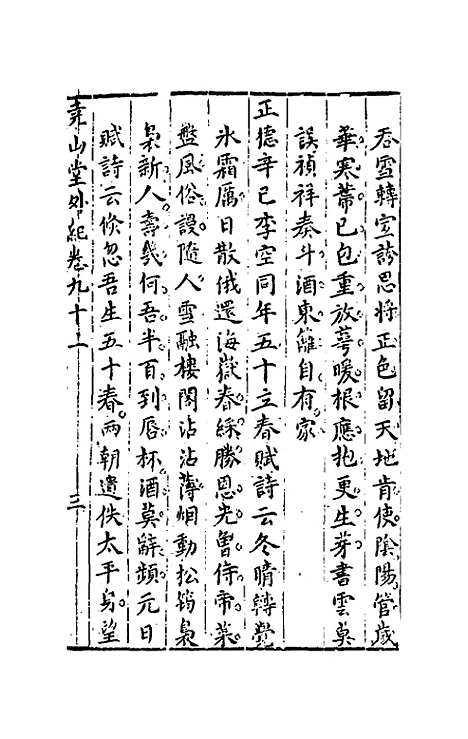 吞雪轉宜誇忍將正色留天地肯使陰陽管歲
華寒蔕已包重放萼暖根應抱更生芽書雲莫
誤禎祥奏斗酒東籬自有家
正德辛巳李空同年五十立春賦詩云冬晴轉覺
氷霜厲日散俄還海嶽春綵勝恩光曾侍帝菜
盤風俗謾隨人雪融樓閣沾沾薄烟動松筠裊
裊新人壽幾何吾半百到唇杯酒莫辭頻元日
賦詩云倐忽吾生五十春兩朝遺佚太平身望
堯山堂外紀卷九十二　三